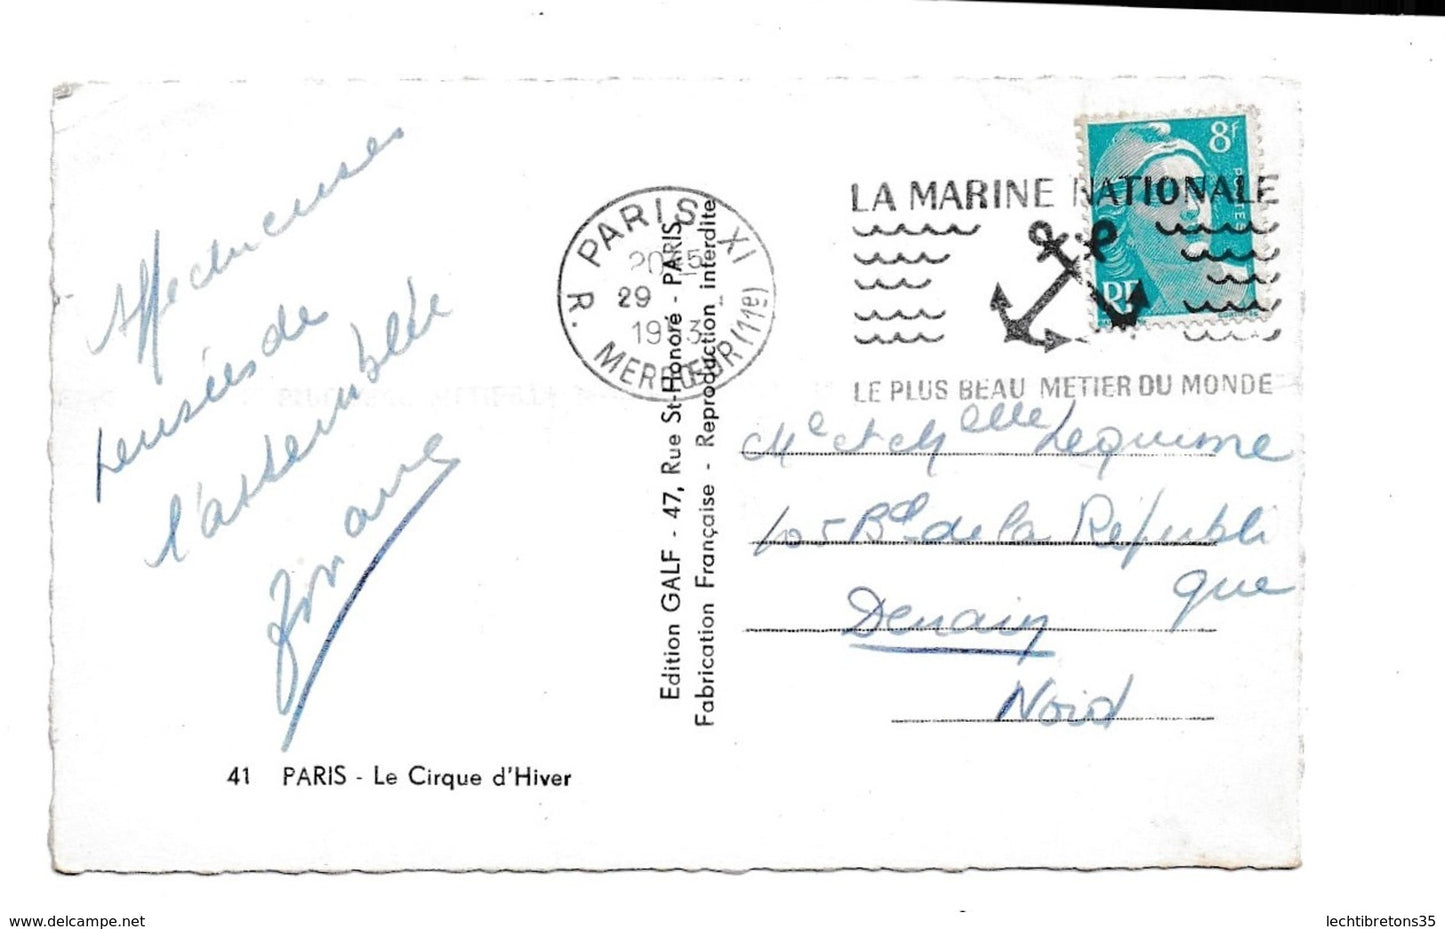 Affectueuses
pensées de
l'assemblée
41 PARIS - Le Cirque d'Hiver
Edition GALF - 47, Rue St-Honoré - PARIS
Fabrication Française - Reproduction interdite
PARIS XI
29
1953
R. MERCŒUR (11e)
8f
POSTES
RF
LA MARINE NATIONALE
LE PLUS BEAU METIER DU MONDE
Me et Melle Lequime
105 Bd de la Républi
que
Denain
Nord
www.delcampe.net
lechtibretons35